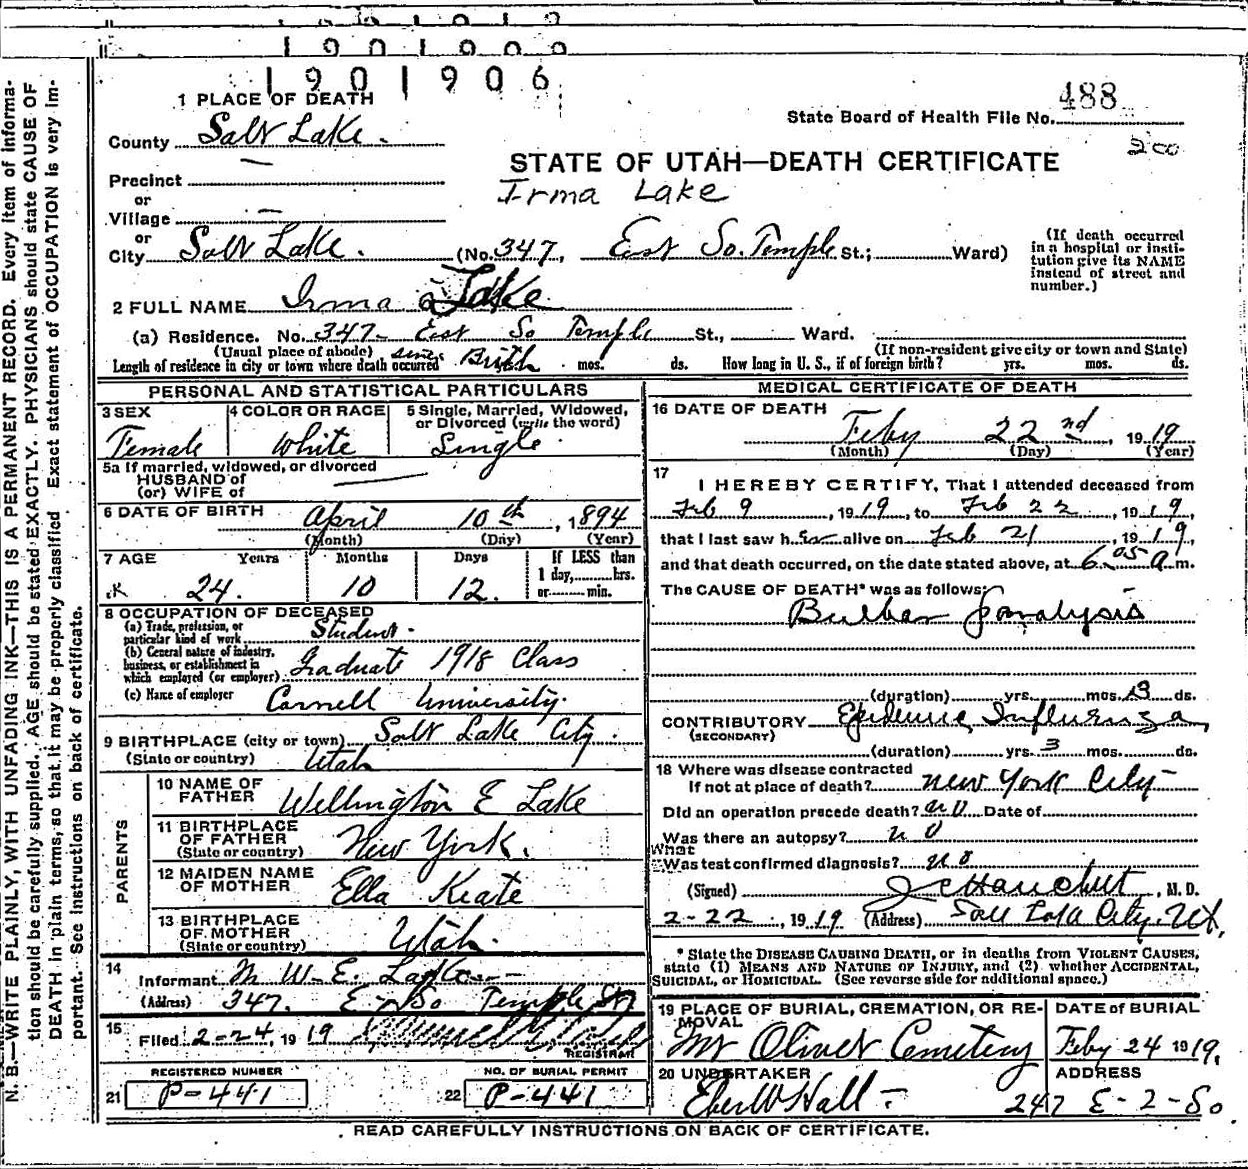 1901906
1 PLACE OF DEATH
488
State Board of Health File No.
County Salt Lake.
200
STATE OF UTAH—DEATH CERTIFICATE
Irma Lake
Precinct —
or
Village —
or
City Salt Lake. (No. 347, East So. Temple St.; Ward)
(If death occurred in a hospital or insti-
tution give its NAME instead of street and number.)
2 FULL NAME Irma Lake
(a) Residence. No. 347- East So Temple St., Ward.
(Usual place of abode) (If non-resident give city or town and State)
Length of residence in city or town where death occurred since Birth mos. ds. How long in U. S., if of foreign birth? yrs. mos. ds.
PERSONAL AND STATISTICAL PARTICULARS
3 SEX Female
4 COLOR OR RACE White
5 Single, Married, Widowed, or Divorced (write the word) Single
5a If married, widowed, or divorced
HUSBAND of
(or) WIFE of
6 DATE OF BIRTH April 10th, 1894
(Month) (Day) (Year)
7 AGE Years Months Days If LESS than
24. 10 12. 1 day, hrs.
or min.
8 OCCUPATION OF DECEASED
(a) Trade, profession, or particular kind of work Student.
(b) General nature of industry, business, or establishment in which employed (or employer) Graduate 1918 Class
(c) Name of employer Cornell University.
9 BIRTHPLACE (city or town) Salt Lake City.
(State or country) Utah
PARENTS
10 NAME OF FATHER Wellington E Lake
11 BIRTHPLACE OF FATHER (State or country) New York.
12 MAIDEN NAME OF MOTHER Ella Keate
13 BIRTHPLACE OF MOTHER (State or country) Utah.
14
Informant M W. E. Lake
(Address) 347. E - So Temple St
15
Filed 2-24, 1919
REGISTRAR
REGISTERED NUMBER
21 P-441
NO. OF BURIAL PERMIT
22 P-441
MEDICAL CERTIFICATE OF DEATH
16 DATE OF DEATH
Feby 22nd, 1919
(Month) (Day) (Year)
17
I HEREBY CERTIFY, That I attended deceased from
Feb 9, 1919, to Feb 22, 1919,
that I last saw her alive on Feb 21, 1919,
and that death occurred, on the date stated above, at 6.05 a m.
The CAUSE OF DEATH* was as follows:
Bulbar Paralysis
(duration) yrs. mos. 13 ds.
CONTRIBUTORY Epidemic Influenza
(SECONDARY)
(duration) yrs. 3 mos. ds.
18 Where was disease contracted
If not at place of death? New York City-
Did an operation precede death? no Date of
Was there an autopsy? no
What
Was test confirmed diagnosis? no
(Signed) , M. D.
2-22, 1919 (Address) Salt Lake City. Ut.
* State the DISEASE CAUSING DEATH, or in deaths from VIOLENT CAUSES,
state (1) MEANS AND NATURE OF INJURY, and (2) whether ACCIDENTAL,
SUICIDAL, or HOMICIDAL. (See reverse side for additional space.)
19 PLACE OF BURIAL, CREMATION, OR RE-
MOVAL
Mt Olivet Cemetery
DATE of BURIAL
Feby 24 1919,
20 UNDERTAKER
Eber W Hall -
ADDRESS
247 E-2-So
READ CAREFULLY INSTRUCTIONS ON BACK OF CERTIFICATE.
N. B.—WRITE PLAINLY, WITH UNFADING INK—THIS IS A PERMANENT RECORD. Every item of informa-
tion should be carefully supplied. AGE should be stated EXACTLY. PHYSICIANS should state CAUSE OF
DEATH in plain terms, so that it may be properly classified. Exact statement of OCCUPATION is very im-
portant. See instructions on back of certificate.